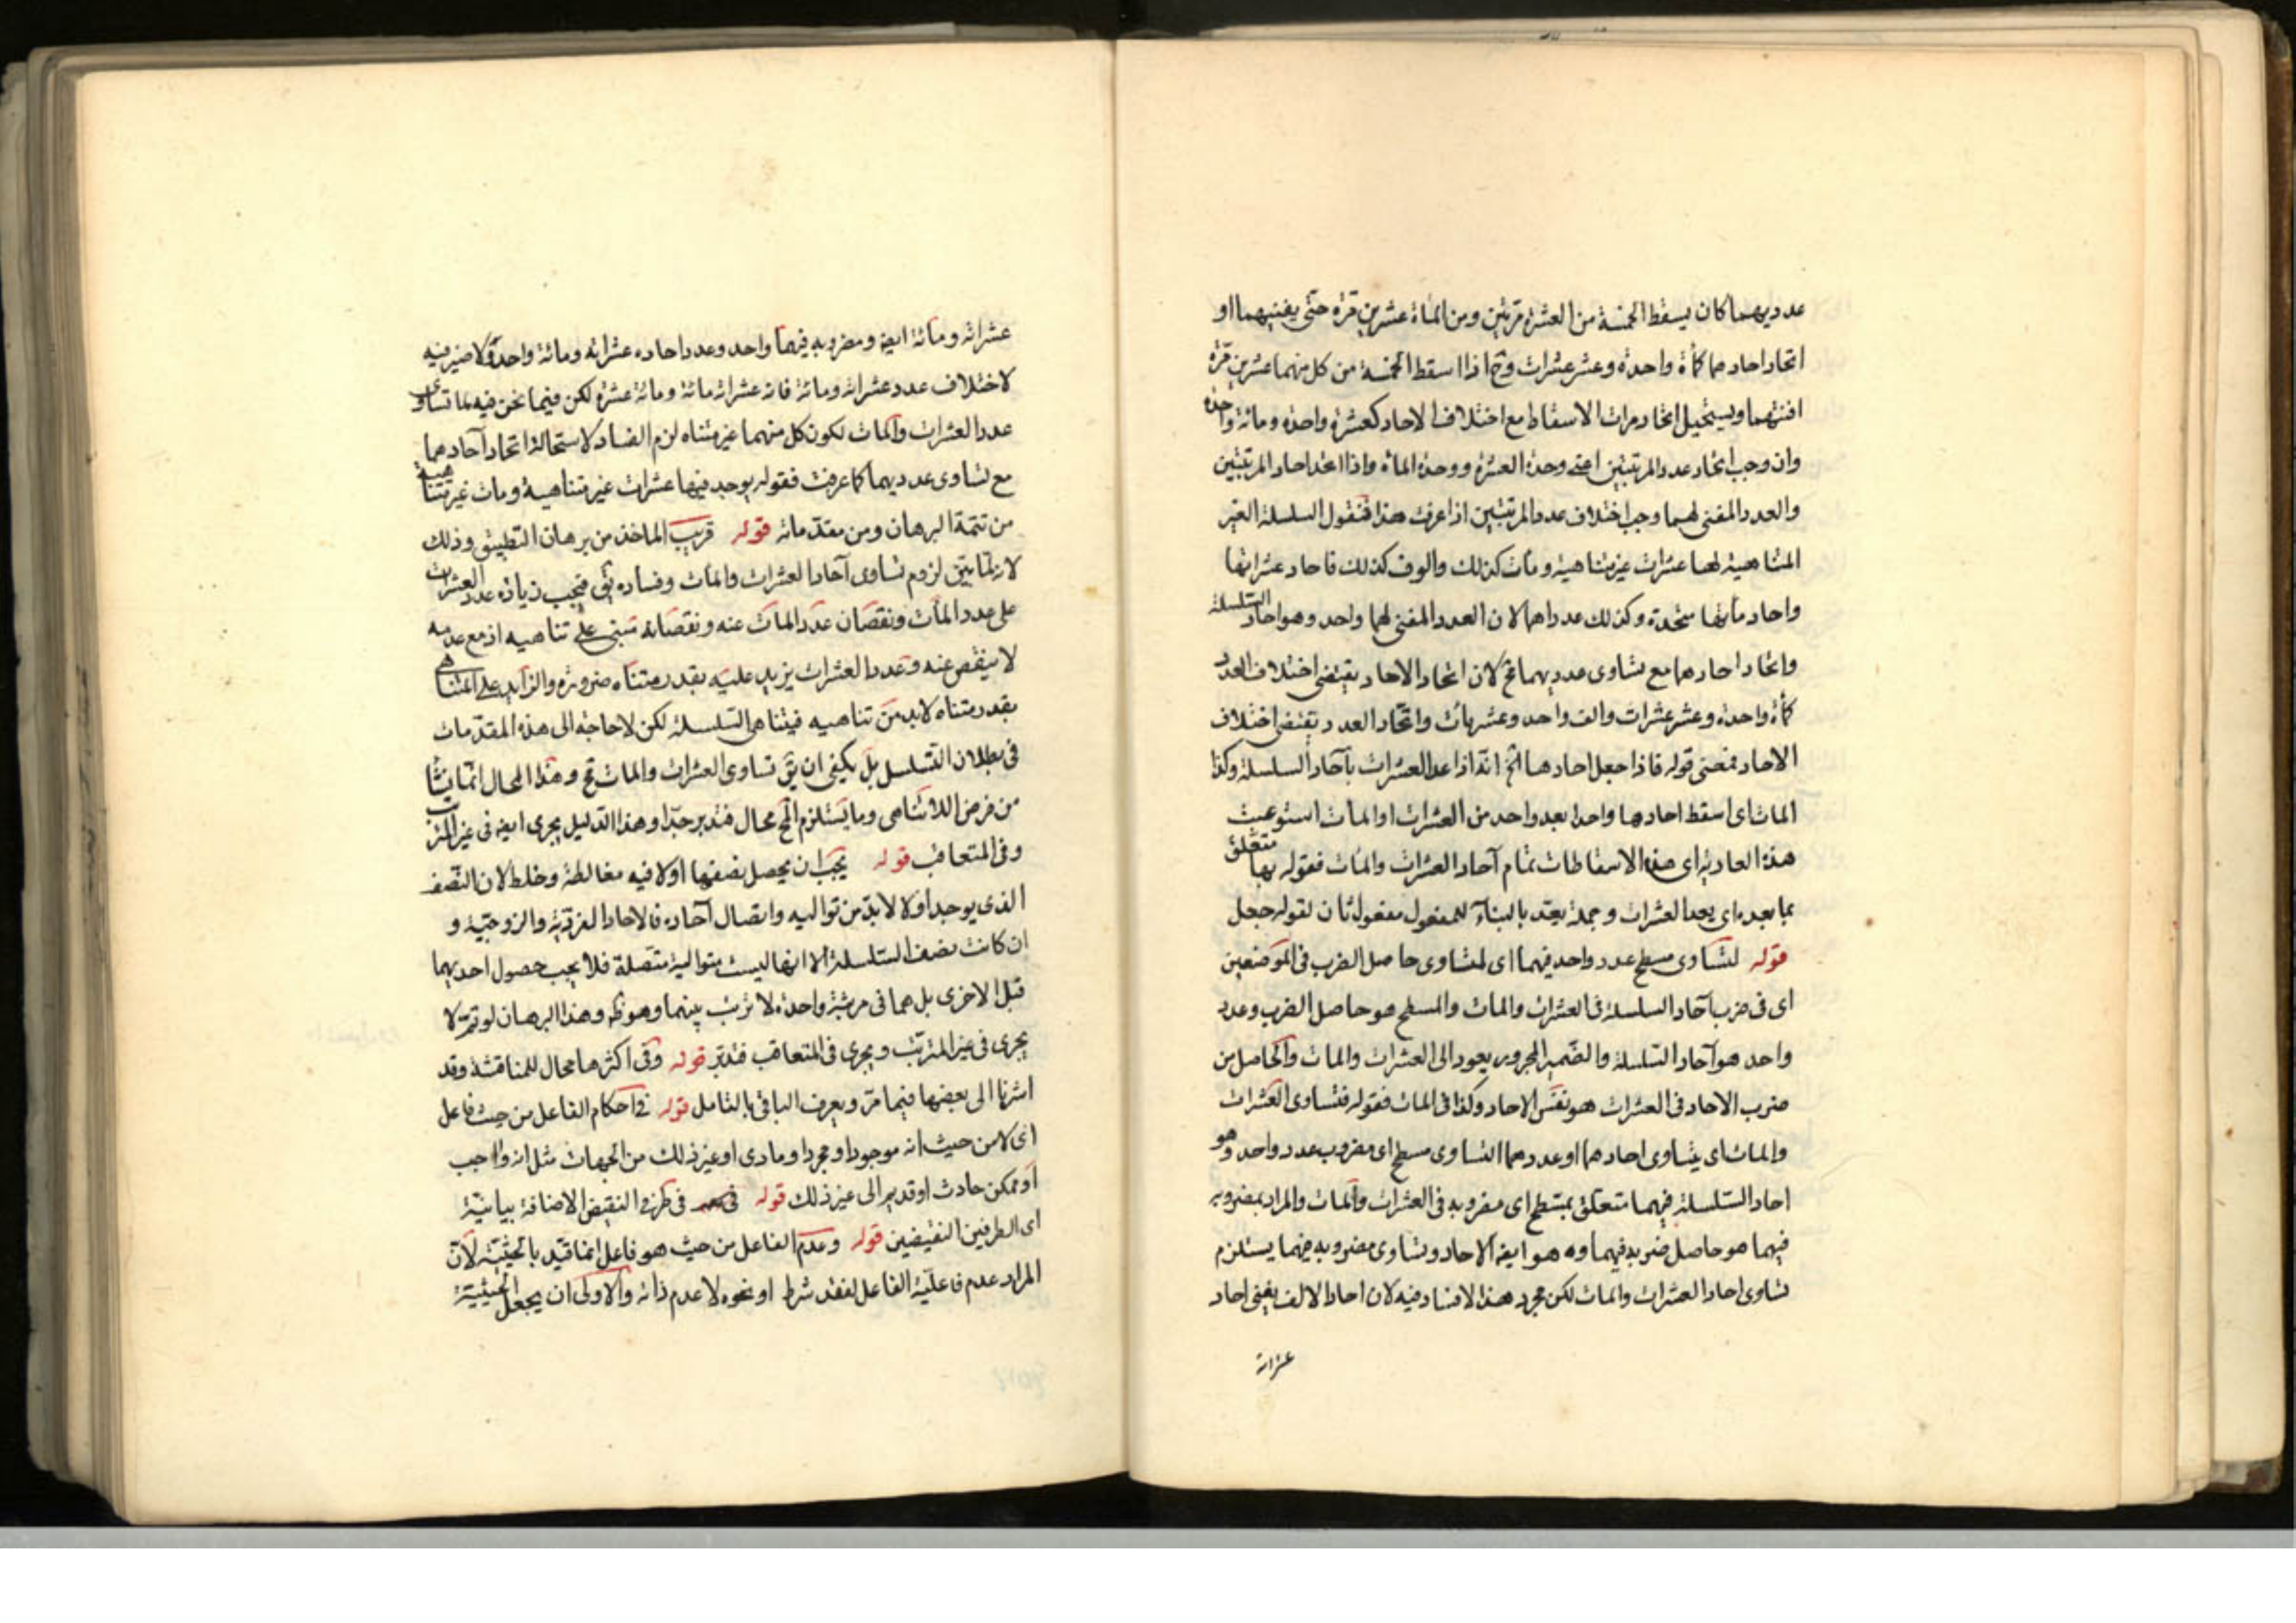 عدديهما كان يسقط الخمسة من العشرة مرتين ومن المأة عشرين مرة حتى يفنيهما او
اتحاد احادهما كمأة واحدة وعشر عشرات وح اذا اسقط الخمسة من كل منهما عشرين مرة
افنتهما ويستحيل اتحاد مرات الاسقاط مع اختلاف الاحاد كعشرة واحدة ومائة واحدة
وان وجب اتحاد عدد المرتبتين اعنى وحدة العشرة ووحدة المأة واذا اتحد احاد المرتبتين
والعدد المفنى لهما وجب اختلاف عدد المرتبتين اذا عرفت هذا فنقول السلسلة الغير
المتناهية لها عشرات غير متناهية ومآت كذلك والوف كذلك فاحاد عشراتها
واحاد مأتها متحدة وكذلك عدداهما لان العدد المفنى لهما واحد وهو احاد السلسلة
واتحاد احادهما مع تساوى عدديهما مح لان اتحاد الاحاد يقتضى اختلاف العدد
كمأة واحدة وعشر عشرات والف واحد وعشر مآت واتحاد العدد يقتضى اختلاف
الاحاد فمعنى قوله فاذا جعل احادها الخ انه اذا عد العشرات بآحاد السلسلة وكذا
المات اى اسقط احادها واحدا بعد واحد من العشرات او المات استوعبت
هذه العادية اى هذه الاسقاطات تمام آحاد العشرات والمات فقوله بها متعلق
بما بعده اى بعد العشرات وجملة يعتد بالبناء للمفعول مفعول ثان لقوله جعل
قوله لتساوى مسطح عدد واحد فيهما اى لتساوى حاصل الضرب فى الموضعين
اى فى ضرب آحاد السلسلة فى العشرات والمات والمسطح هو حاصل الضرب وعدد
واحد هو آحاد السلسلة والضمير المجرور يعود الى العشرات والمات والحاصل من
ضرب الاحاد فى العشرات هو نفس الاحاد وكذا فى المات فقوله فتساوى العشرات
والمات اى يتساوى احادهما او عددهما التساوى مسطح اى مضروب عدد واحد وهو
احاد السلسلة فيهما متعلق بمسطح اى مضروبه فى العشرات والمات والمراد بمضروبه
فيهما هو حاصل ضربه فيهما وه هو ايضا الاحاد وتساوى مضروبه فيهما يستلزم
تساوى احاد العشرات والمات لكن مجرد هذا لا فساد فيه لان احاد الالف يفنى احاد
عشراته
عشراته ومأته ايضا ومضروبه فيهما واحد وعدد احاده عشراته ومائة واحدة ولا ضير فيه
لاختلاف عدد عشراته ومائة فان عشراته مائة ومائة عشرة لكن فيما نحن فيه لما تساوى
عدد العشرات والمات لكون كل منهما غير متناه لزم الفساد لاستحالة اتحاد آحادهما
مع تساوى عدديهما كما عرفت فقوله يوجد فيها عشرات غير متناهية ومات غير متناهية
من تتمة البرهان ومن مقدماته قوله قريب الماخذ من برهان التطبيق وذلك
لانه لما بين لزوم تساوى آحاد العشرات والمات وفساده بقى فيجب زيادة عدد العشرات
على عدد المآت ونقصان عدد المات عنه ونقصانه تبتنى على تناهيه اذ مع عدمه
لا ينقص عنه وعدد العشرات يزيد عليه بقدر متناه ضرورة والزايد على المتناهى
بقدر متناه لابد من تناهيه فيتناهى السلسلة لكن لا حاجة الى هذه المقدمات
فى بطلان التسلسل بل يكفى ان يق تساوى العشرات والمات مح وهذا المحال انما ينشأ
من فرض اللاتناهى وما يستلزم المح محال فتدبر جدا وهذا الدليل يجرى ايضا فى غير المترتب
وفى المتعاقب قوله يجب ان يحصل نصفها اولا فيه مغالطة وخلط لان النصف
الذى يوجد اولا لابد من تواليه واتصال آحاده فالاحاد الفردية والزوجية و
ان كانت نصف السلسلة الا انها ليست متوالية متصلة فلا يجب حصول احديهما
قبل الاخرى بل هما فى مرتبة واحدة لا ترتب بينهما وهو ظ وهذا البرهان لو تم لا
يجرى فى غير المترتب ويجرى فى المتعاقب فتدبر قوله وفى اكثرها مجال للمناقشة وقد
اشرنا الى بعضها فيما مر ويعرف الباقى بالتامل قوله فى احكام الفاعل من حيث فاعل
اى لا من حيث انه موجود او مجرد او مادى او غير ذلك من الجهات مثل انه واجب
او ممكن حادث او قديم الى غير ذلك قوله فى طرفى النقيض الاضافة بيانية
اى الطرفين النقيضين قوله وعدم الفاعل من حيث هو فاعل انما قيد بالحيثية لان
المراد عدم فاعلية الفاعل لفقد شرط او نحوه لا عدم ذاته والاولى ان يجعل الحيثية